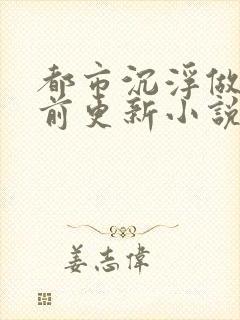 都市沉浮做
前更新小說
姜志偉